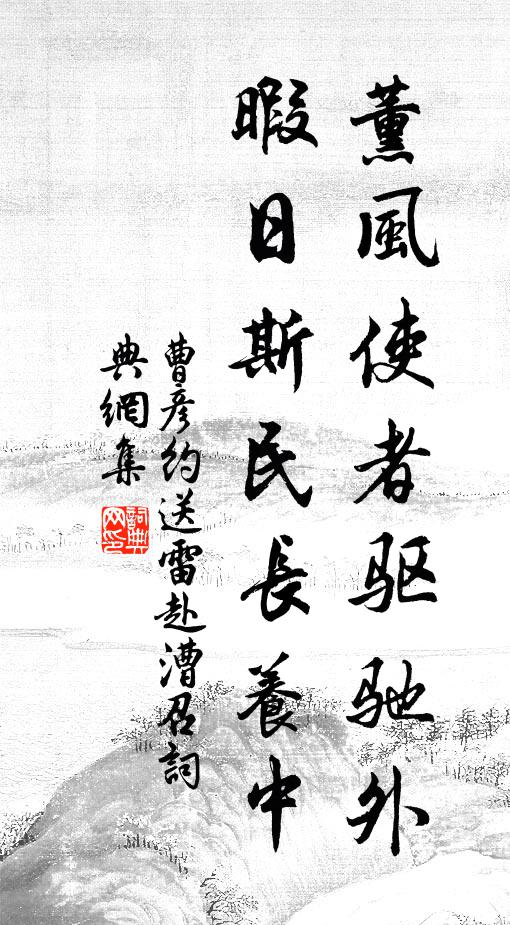 薰風使者驱驰外
暇日斯民長養中
曹彥约送雷赴漕召詞
典網集
詞典网印